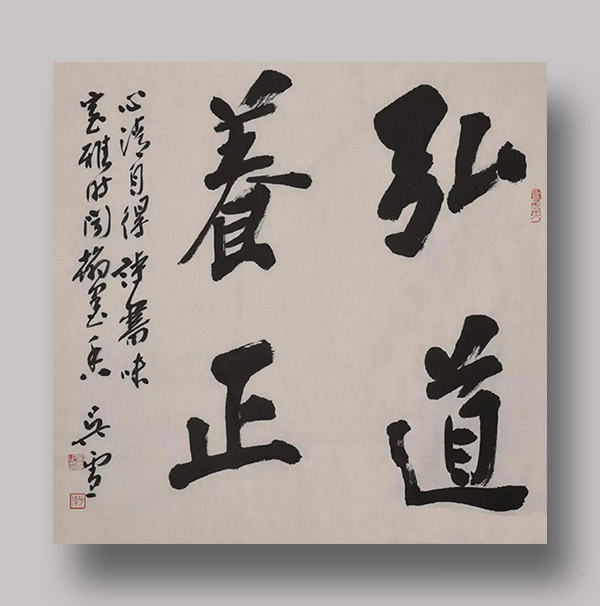 弘道
養正
心清自得詩書味
室雅時聞翰墨香 吳雪